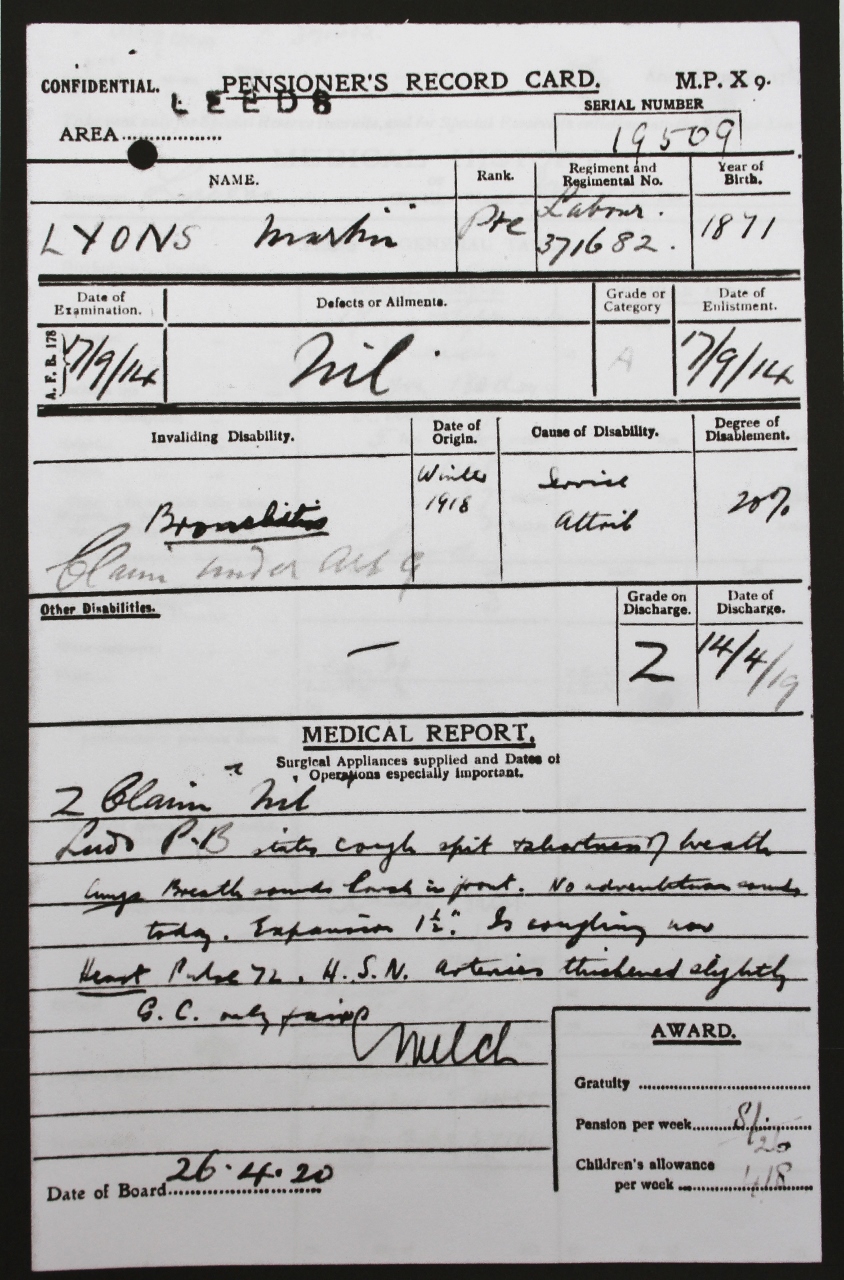 CONFIDENTIAL. PENSIONER'S RECORD CARD. M.P. X 9.
LEEDS
AREA
SERIAL NUMBER
19509
NAME. Rank. Regiment and Regimental No. Year of Birth.
LYONS Martin Pte Labour. 371682. 1871
Date of Examination. Defects or Ailments. Grade or Category Date of Enlistment.
A.F.B. 178 17/9/14 Nil A 17/9/14
Invaliding Disability. Date of Origin. Cause of Disability. Degree of Disablement.
Bronchitis Winter 1918 Service Attrib 20%
Claim under Art 9
Other Disabilities. Grade on Discharge. Date of Discharge.
— 2 14/4/19
MEDICAL REPORT.
Surgical Appliances supplied and Dates of
Operations especially important.
2 Claim Nil
P.B states cough spit & shortness of breath
Lungs Breath sounds harsh in front. No adventitious sounds
today. Expansion 1½". Is coughing now
Heart Pulse 72. H.S.N. Arteries thickened slightly
G.C. only fair
Welch
AWARD.
Gratuity
Pension per week 8/-
Children's allowance
per week
Date of Board 26.4.20